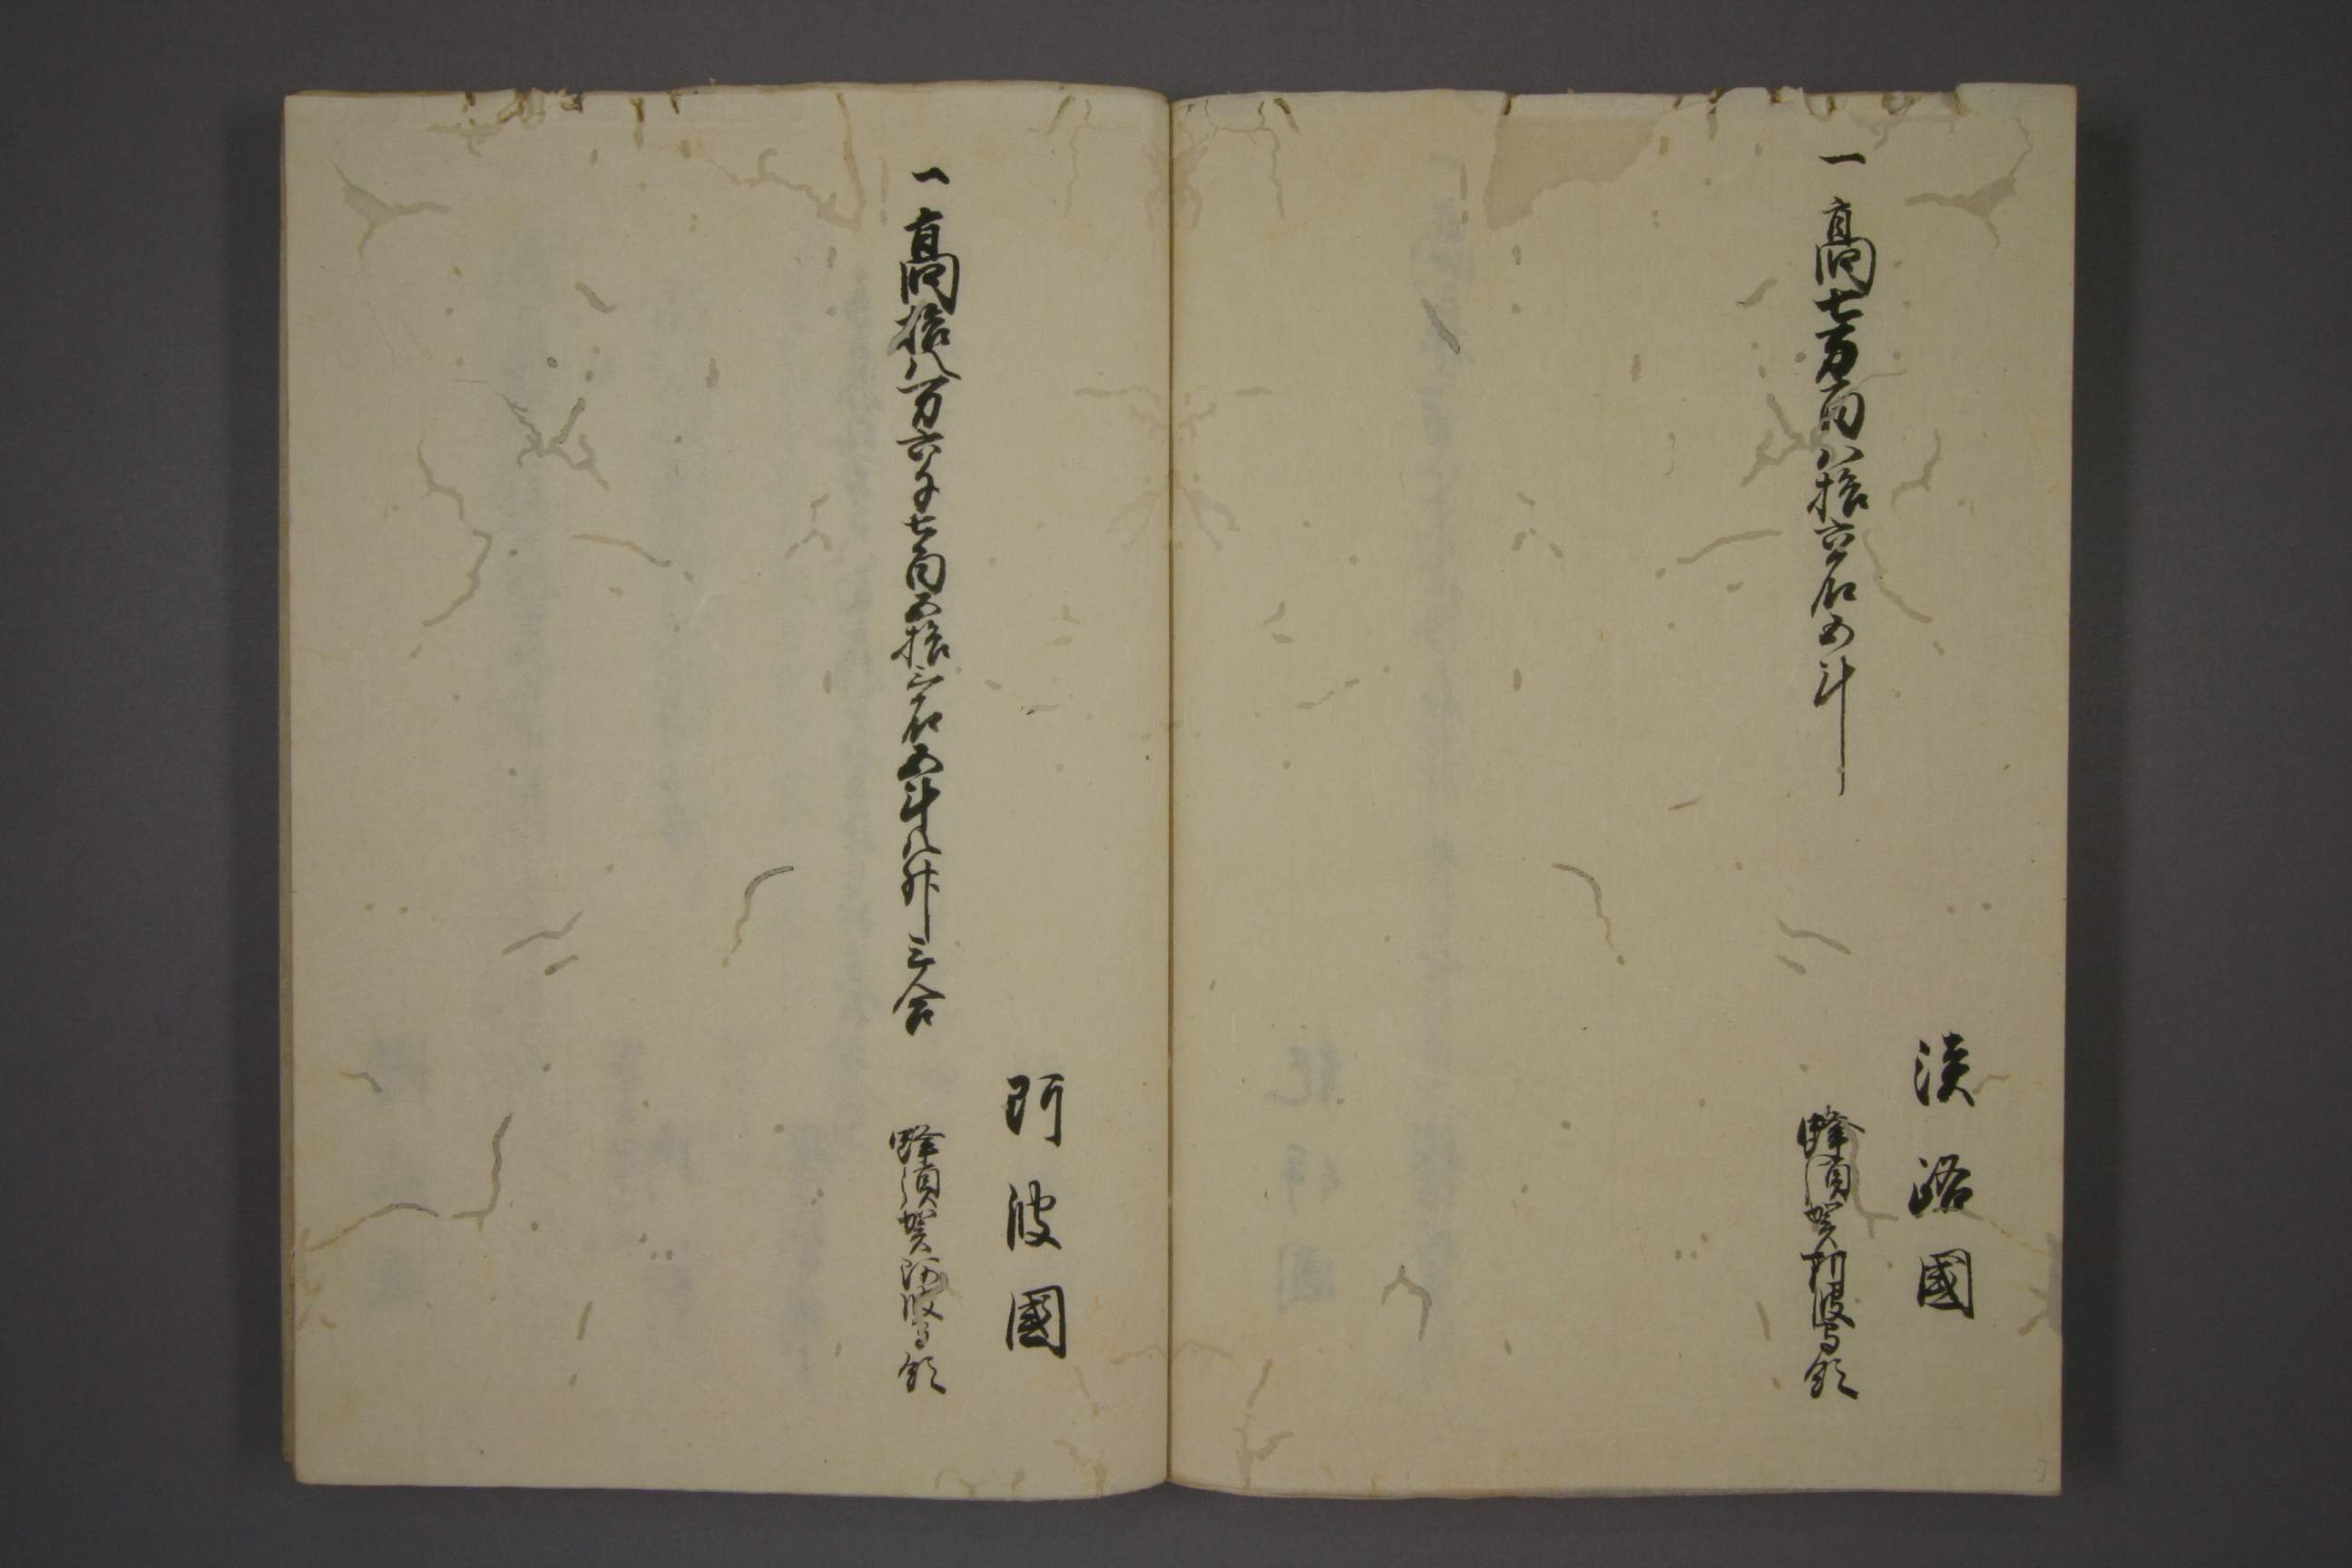 淡路國
一高七万百八拾六石五斗
蜂須賀阿波守領
阿波國
一高拾八万六千七百五拾三石五斗八升三合
蜂須賀阿波守領